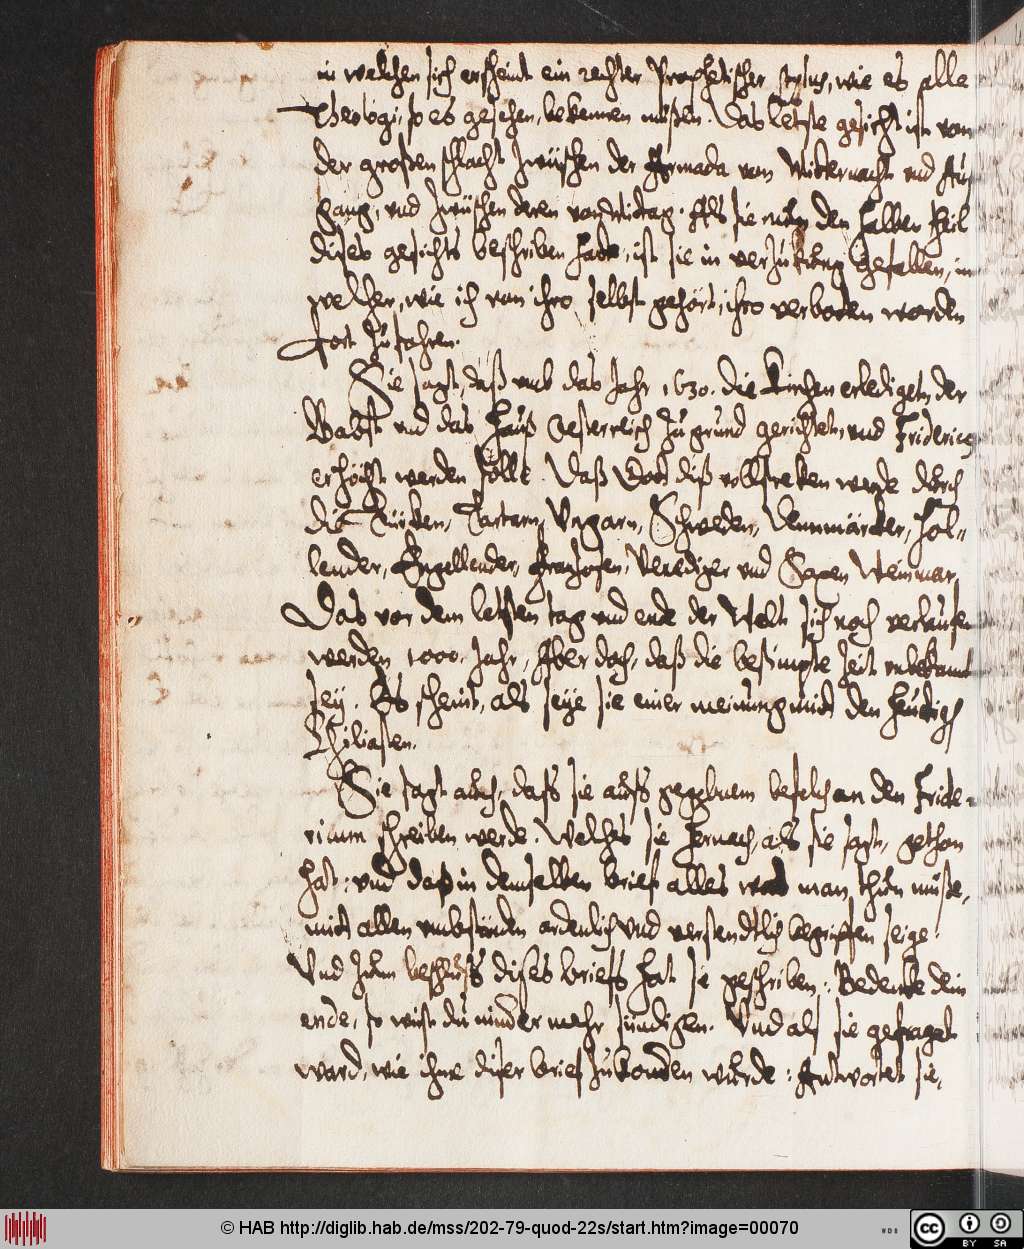 in welchen sich erscheint ein rechter Prophetischer stylus, wie es alle
Theologi, so es gesehen, bekennen müßen. Das letste gesicht ist von
der großen schlacht zwüschen der Armada von Mitternacht vnd Auf-
gang, vnd zwüschen deren von Mittag. Als sie nuhn den halben theil
dises gesichts beschriben hatt, ist sie in verzukung gefallen, in
welcher, wie ich von ihro selbst gehört, ihro verboten worden
fort zu fahren.
Sie sagt, daß vmb das Jahr 1630. die Kirchen erlediget, der
Babst vnd das Hauß Oesterreich zu grund gerichtet, vnd Fridericus
erhöcht werden sölle. Daß Gott diß vollstreken werde durch
die Türcken, Tartarn, Vngarn, Schweden, Dennmärcker, Hol-
lender, Engellender, Franzosen, Venediger vnd Saxen Weinmar,
Das vor dem letsten tag vnd ende der Welt sich noch verlaufen
werden 1000. Jahr, Aber doch, daß die bestimpte zeit vnbekant
sey. Es scheint, als seye sie einer meinung mit den heutigen
Chiliasten.
Sie sagt auch, daß sie aufs gegebnem befelch an den Fride-
ricum schreiben werde. Welches sie hernach, als sie sagt, gethan
hat: vnd daß in demselben brief alles was man thun müße,
mit allen vmbstünden ordenlich vnd verstendtlich begriffen seige.
Vnd zum beschluss dises briefs hat sie geschriben: Bedenke dein
ende, so wirst du nimmermehr sündigen. Vnd als sie gefraget
ward, wie ihme diser brief zukommen würde: Antwortet sie,
© HAB http://diglib.hab.de/mss/202-79-quod-22s/start.htm?image=00070
WDB
cc BY SA